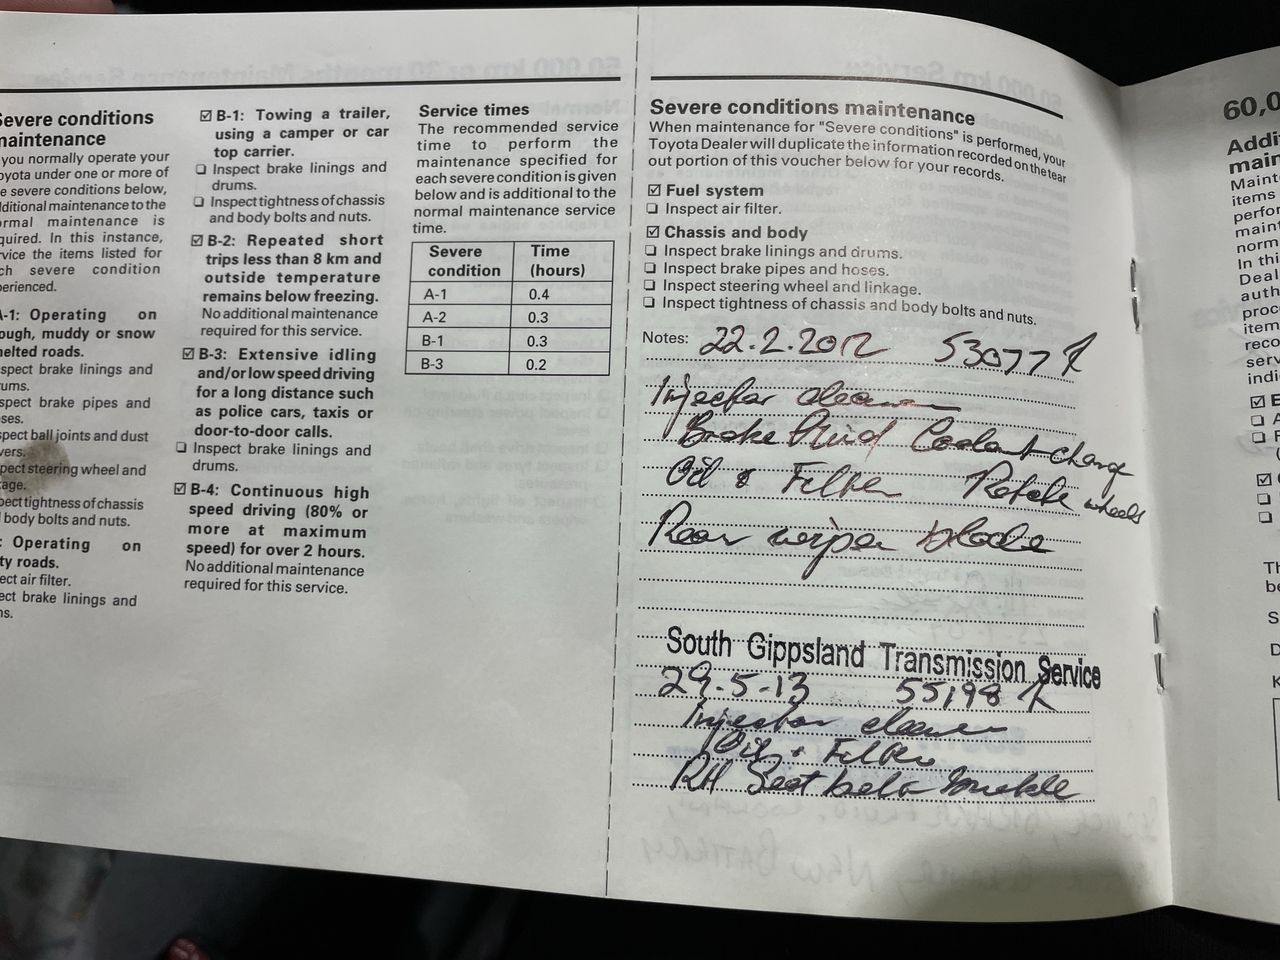 Severe conditions
maintenance
you normally operate your
oyota under one or more of
e severe conditions below,
ditional maintenance to the
ormal maintenance is
quired. In this instance,
rvice the items listed for
ch severe condition
perienced.
A-1: Operating on
ough, muddy or snow
melted roads.
spect brake linings and
rums.
spect brake pipes and
oses.
spect ball joints and dust
vers.
pect steering wheel and
age.
pect tightness of chassis
body bolts and nuts.
: Operating on
ty roads.
ect air filter.
ect brake linings and
ms.
☑ B-1: Towing a trailer,
using a camper or car
top carrier.
❏ Inspect brake linings and
drums.
❏ Inspect tightness of chassis
and body bolts and nuts.
☑ B-2: Repeated short
trips less than 8 km and
outside temperature
remains below freezing.
No additional maintenance
required for this service.
☑ B-3: Extensive idling
and/or low speed driving
for a long distance such
as police cars, taxis or
door-to-door calls.
❏ Inspect brake linings and
drums.
☑ B-4: Continuous high
speed driving (80% or
more at maximum
speed) for over 2 hours.
No additional maintenance
required for this service.
Service times
The recommended service
time to perform the
maintenance specified for
each severe condition is given
below and is additional to the
normal maintenance service
time.
Severe condition Time (hours)
A-1 0.4
A-2 0.3
B-1 0.3
B-3 0.2
Severe conditions maintenance
When maintenance for "Severe conditions" is performed, your
Toyota Dealer will duplicate the information recorded on the tear
out portion of this voucher below for your records.
☑ Fuel system
❏ Inspect air filter.
☑ Chassis and body
❏ Inspect brake linings and drums.
❏ Inspect brake pipes and hoses.
❏ Inspect steering wheel and linkage.
❏ Inspect tightness of chassis and body bolts and nuts.
Notes: 22.2.2012 53077 K
Injector cleaner
Brake Fluid Coolant change
Oil & Filter Rotate wheels
Rear wiper blade
South Gippsland Transmission Service
29.5.13 55,198 K
Injector cleaner
Oil + Filter
RH Seat belt buckle
60,0
Addi
main
Maint
items
perfor
maint
norm
In thi
Deal
auth
proc
item
reco
serv
indi
☑ E
❏ A
❏ F
(
☑
❏
❏
Th
be
S
D
K